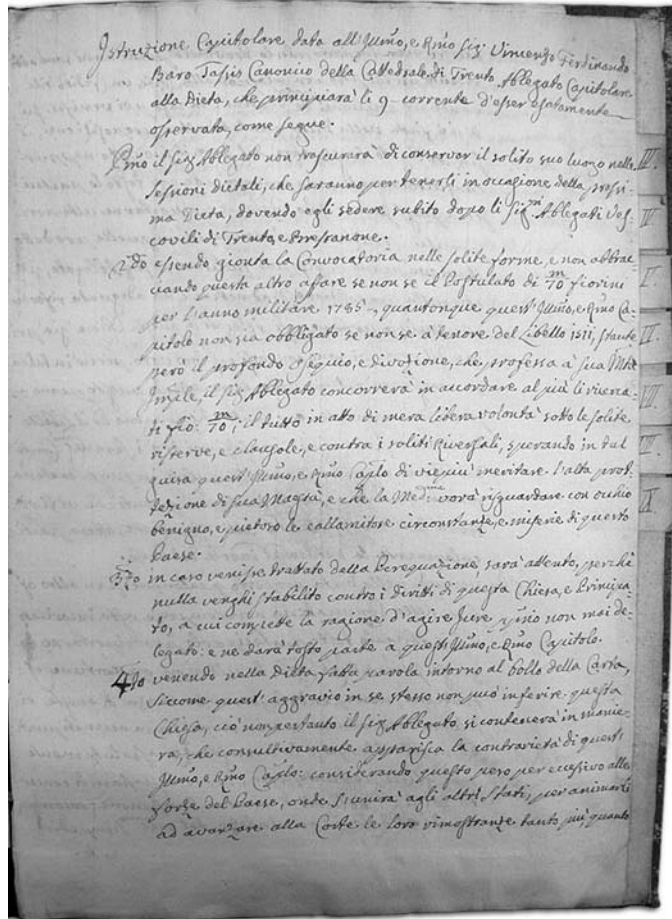 Istruzione Capitolare data all' Illmo, e Rmo Sig: Vincenzo Ferdinando
Baro Tassis Canonico della Cattedrale di Trento Ablegato Capitolare
alla Dieta, che principiarà li 9 corrente d'esser esatamente
osservata, come segue.
Pmo il Sig Ablegato non trascurarà di conservar il solito suo luogo nelle
sessioni dietali, che saranno per tenersi in occasione della prossi-
ma Dieta, dovendo egli sedere subito dopo li Sigri Ablegati Ves-
covili di Trento, e Bressanone.
2do essendo gionta la Convocatoria nelle solite forme, e non abbrac-
ciando questa altro affare se non se il Postulato di 70m fiorini
per l'anno militare 1785, quantonque quest' Illmo, e Rmo Ca-
pitolo non sia obbligato se non se à tenore del Libello 1511, stante
però il profondo ossequio, e divozione, che professa à Sua Mtà
il Sig Ablegato concorrerà in accordare al più li ricerca-
ti fio: 70m, il tutto in atto di mera libera volontà sotto le solite
riserve, e clausole, e contra i soliti Riversali, sperando in tal
guisa quest' Illmo, e Rmo Caplo di vie più meritare l'alta prot-
tezione di Sua Maestà, e che la Medma vorà risguardare con occhio
benigno, e pietoso le callamitose circonstanze, e miserie di questo
Paese.
3zo in caso venisse trattato della Perequazione, sarà attento, perchè
nulla venghi stabilito contro i diritti di questa Chiesa, e Principa-
to, a cui compette la ragione d'agire Jure non mai de-
legato: e ne darà tosto parte a quest' Illmo, e Rmo Capitolo.
4to venendo nella Dieta fatta parola intorno al bollo della Carta,
siccome quest' aggravio in se stesso non può inferire questa
Chiesa, ciò non pertanto il Sig Ablegato si contenerà in manie-
ra, che consultivamente apparisca la contrarietà di quest'
Illmo, e Rmo Caplo: considerando questo peso per eccesivo alle
forze del Paese, onde s'unirà agli altri Stati, per animarli
ad avanzare alla Corte le loro rimostranze tanto più, quanto
IV.
V.
VI.
VII.
IX.